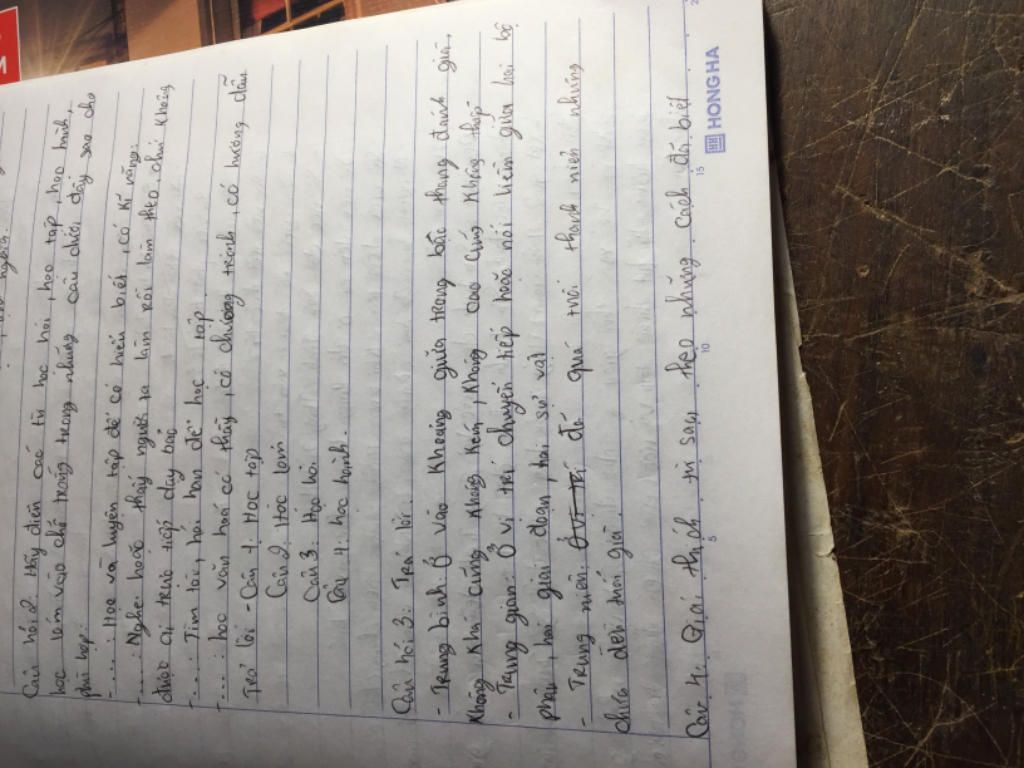 nghĩa.
Câu hỏi 2. Hãy điền các từ học hỏi, học tập, học hành,
học lỏm vào chỗ trống trong những câu dưới đây sao cho
phù hợp:
- .... : Học và luyện tập để có hiểu biết, có kĩ năng.
- .... : Nghe hoặc thấy người ta làm rồi làm theo chứ không
được ai trực tiếp dạy bảo
- .... : Tìm tòi, hỏi han để học tập.
- .... : học văn hoá có thầy, có chương trình, có hướng dẫn
Trả lời - Câu 1. Học tập
Câu 2. Học lỏm
Câu 3: Học hỏi
Câu 4: học hành.
Câu hỏi 3: Trả lời:
- Trung bình: Ở vào khoảng giữa trong bậc thang đánh giá,
không khá cũng không kém, không cao cũng không thấp
- Trung gian: Ở vị trí chuyển tiếp hoặc nối liền giữa hai bộ
phận, hai giai đoạn, hai sự vật
- Trung niên: Ở vị trí đã quá tuổi thanh niên nhưng
chưa đến tuổi già.
Câu 4. Giải thích từ sau theo những cách đã biết
5
10
15
2
HONG HA